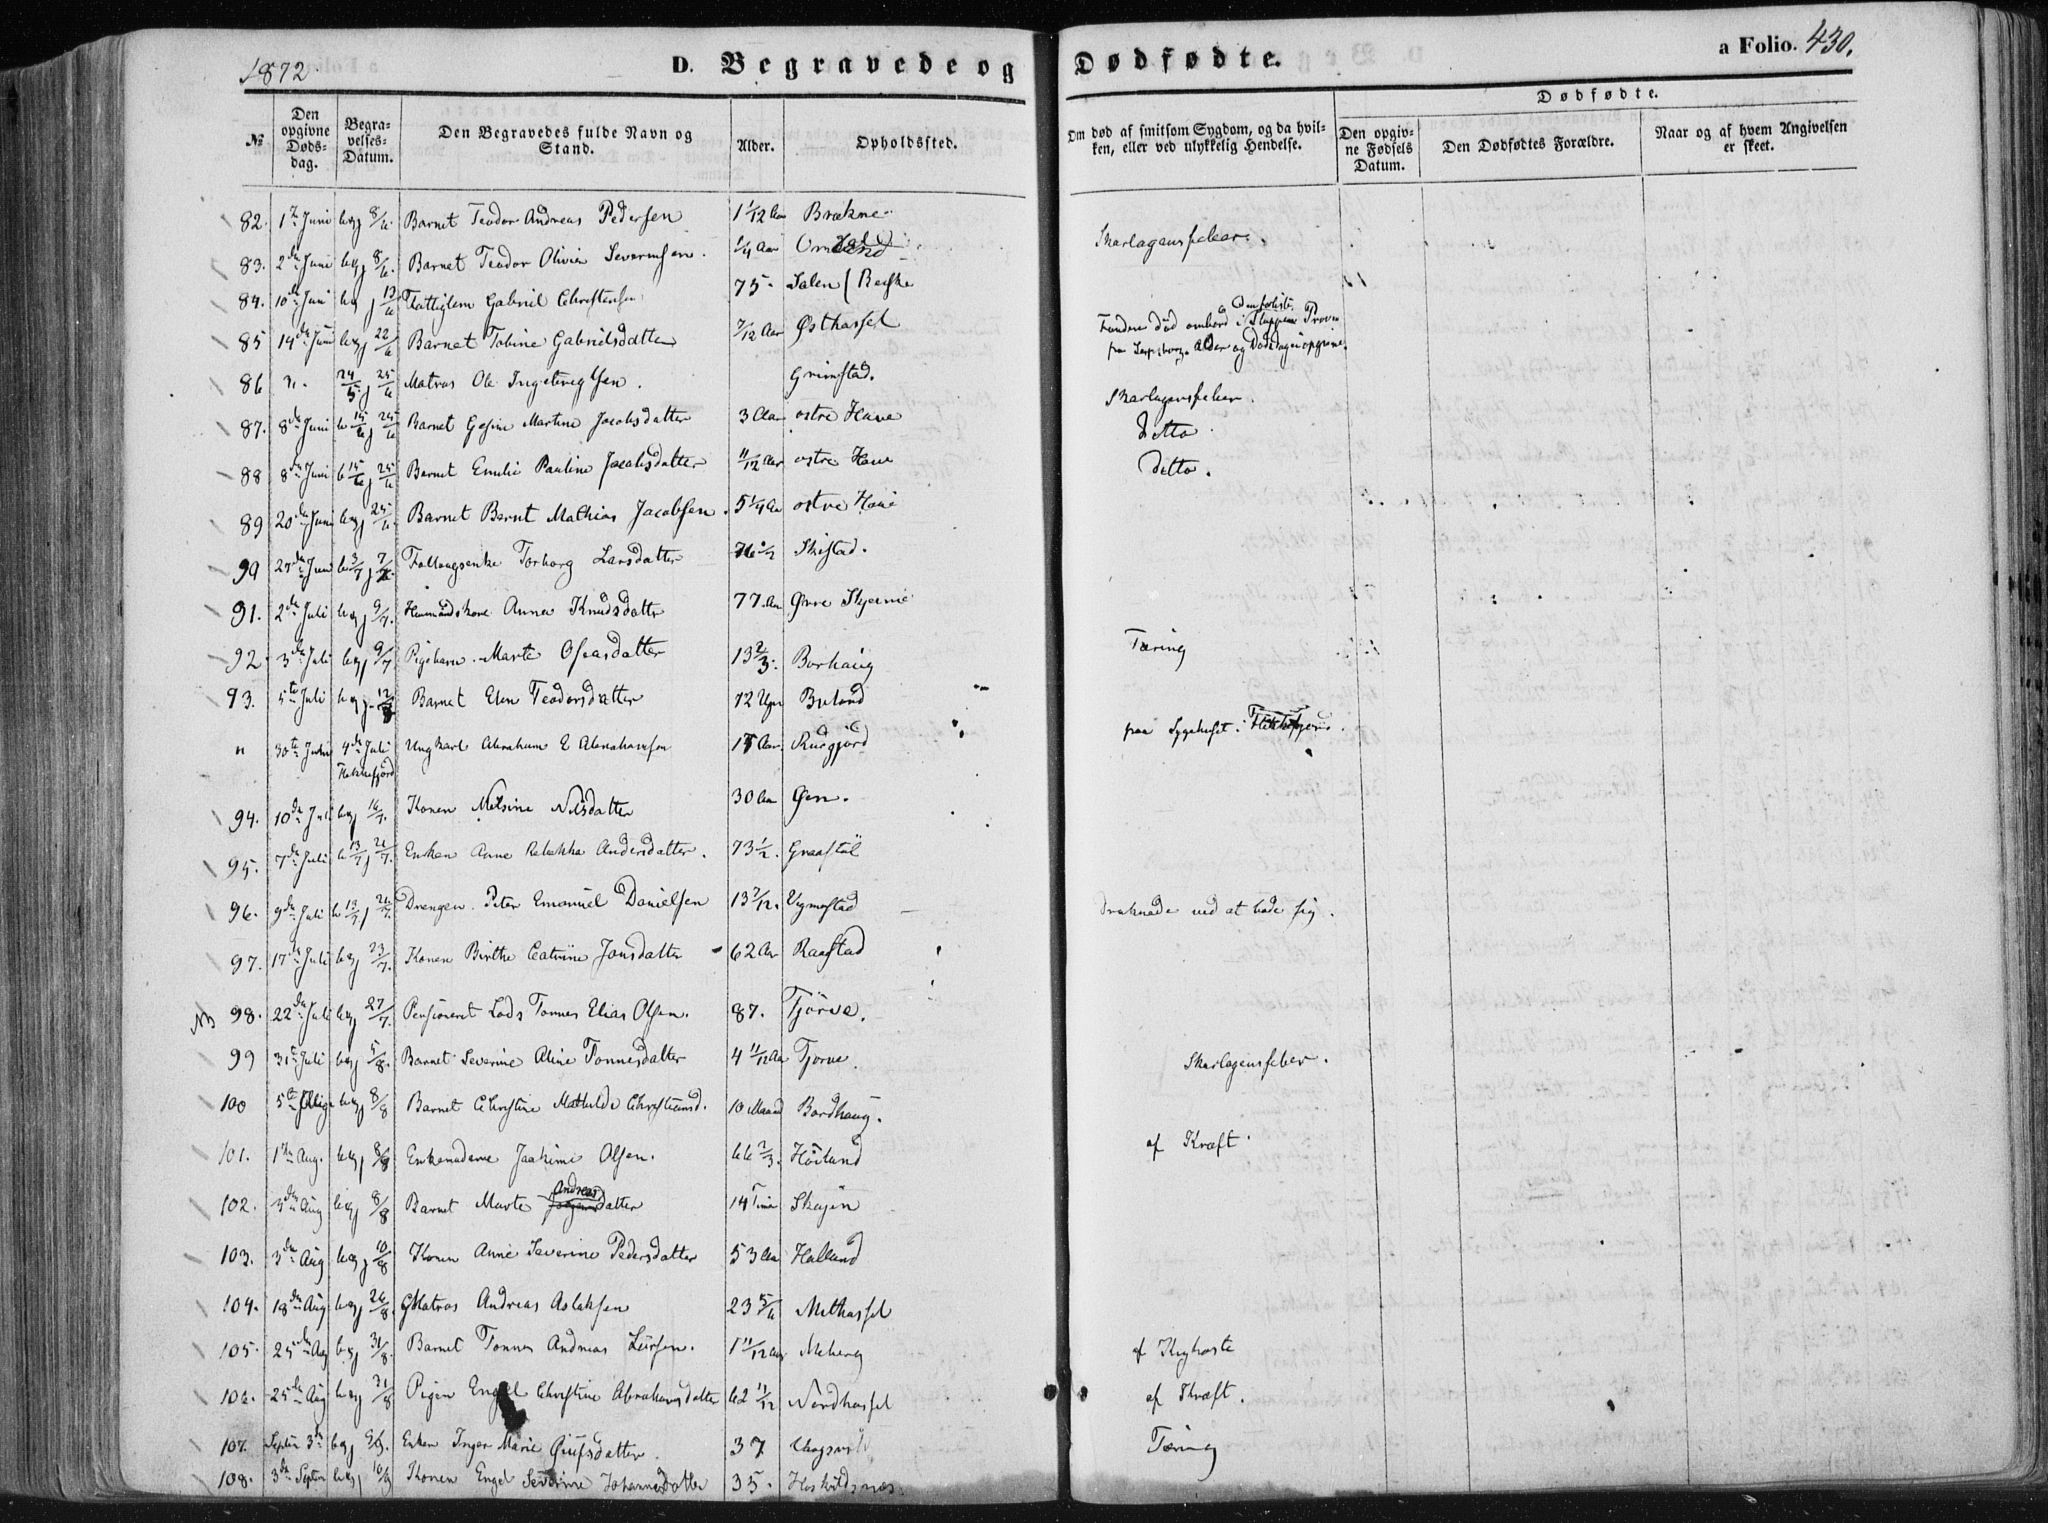 1872.
D. Begravede og Dødfødte.
a Folio. 430.
№
Den opgivne Døds-dag.
Begra-velses-Datum.
Den Begravedes fulde Navn og Stand.
Alder.
Opholdsted.
Om død af smitsom Sygdom, og da hvil-ken, eller ved ulykkelig Hendelse.
Dødfødte.
Den opgiv-ne Fødsels Datum.
Den Dødfødtes Forældre.
Naar og af hvem Angivelsen er skeet.
82. 1te Juni beg 8/6. Barnet Teodor Andreas Pedersen 1 1/12 Aar Brækne
83. 2den Juni beg 8/6. Barnet Teodor Olivier Severinsen. 1/4 Aar Skarlagensfeber.
84. 10de Juni beg 13/6 Fattiglem Gabriel Christensen 75. Salen
85 14de Juni beg 22/6 Barnet Tobine Gabrielsdatter 7/12 Aar Østhassel
86 " 24/5 j 25/6 Matros Ole Grimstad. Funden død ombord i Sluppen Prøven Alder og Dødsdag
87. 8de Juni b 15/6 j 25/6 Barnet Gesine Martine Jacobsdatter 3 Aar østre Haue Skarlagensfeber.
88 8de Juni b 15/6 j 25/6 Barnet Emilie Pauline Jacobsdatter 11/12 Aar østre Haue Ditto
89 20de Juni beg 25/6 Barnet Bernt Mathias Jacobsen. 5 1/4 Aar østre Haue Ditto.
90 27de Juni b 3/7 j 7/7. Torborg Larsdatter 76 1/2 Skistad.
91. 2den Juli beg 9/7. Anna Knudsdatter 77. Aar Øvre Skjerve
92 3de Juli beg 9/7 Pigebarn Marte Oseasdatter 13 2/3. Borhaug Tæring
93. 5te Juli beg 12/7 Barnet Elen Teodorsdatter 12 Uger Buland
" 30te Juni 4de Juli Flekkefjord Ungkarl Abraham E Abrahamsen Aar. Rudgjord paa Sygehuset i Flekkefjord.
94. 10de Juli beg 16/7. Konen Nilsdatter 30 Aar Øen.
95. 7de Juli b 13/7 j 21/7. Enken Anne Rebekka Andersdatter. 73 1/2. Graastøl
96. 9de Juli b 13/7 j 21/7. Drengen Peter Emanuel Danielsen 13 2/12. Vymostad druknede ved at bade sig.
97. 17de Juli beg 23/7. Konen Birthe Catrine Jonsdatter 62 Aar Raastad
NB 98. 22de Juli beg 27/7. Pensioneret Lods Tønnes Elias Olsen. 87. Tjørve.
99 31te Juli beg 5/8. Barnet Severine Aline Tønnesdatter 4 11/12 Aar Tjørve. Skarlagensfeber.
100 5te Aug beg 8/8 Barnet Christine Mathilde Christiansd. 10 Maaned Bordhaug.
101. 1ste Aug. beg 8/8 Enkemanden Joakim Olsen. 66 2/3. Høiland af Kræft.
102. 3de Aug beg 8/8 Barnet Marte Andreasdatter 14 Timer Skejen
103. 3de Aug beg 10/8 Konen Anne Severine Pedersdatter 53 Aar Halland
104. 18de Aug beg 26/8. Matros Andreas Aslaksen 23 5/6 Methassel
105. 25de Aug beg 31/8. Barnet Tønnes Andreas Larsen. 1 11/12 Aar Meberg af Kighoste
106. 25de Aug beg 31/8 Pigen Engel Christine Abrahamsdatter 62 11/12 Nordhassel af Kræft.
107. Septbr 3de beg 9/9. Enken Inger Marie 37 Tæring
108. 3de Septbr beg 10/9 Konen Engel Severine Johannesdatter 35. Haskuldsnes.